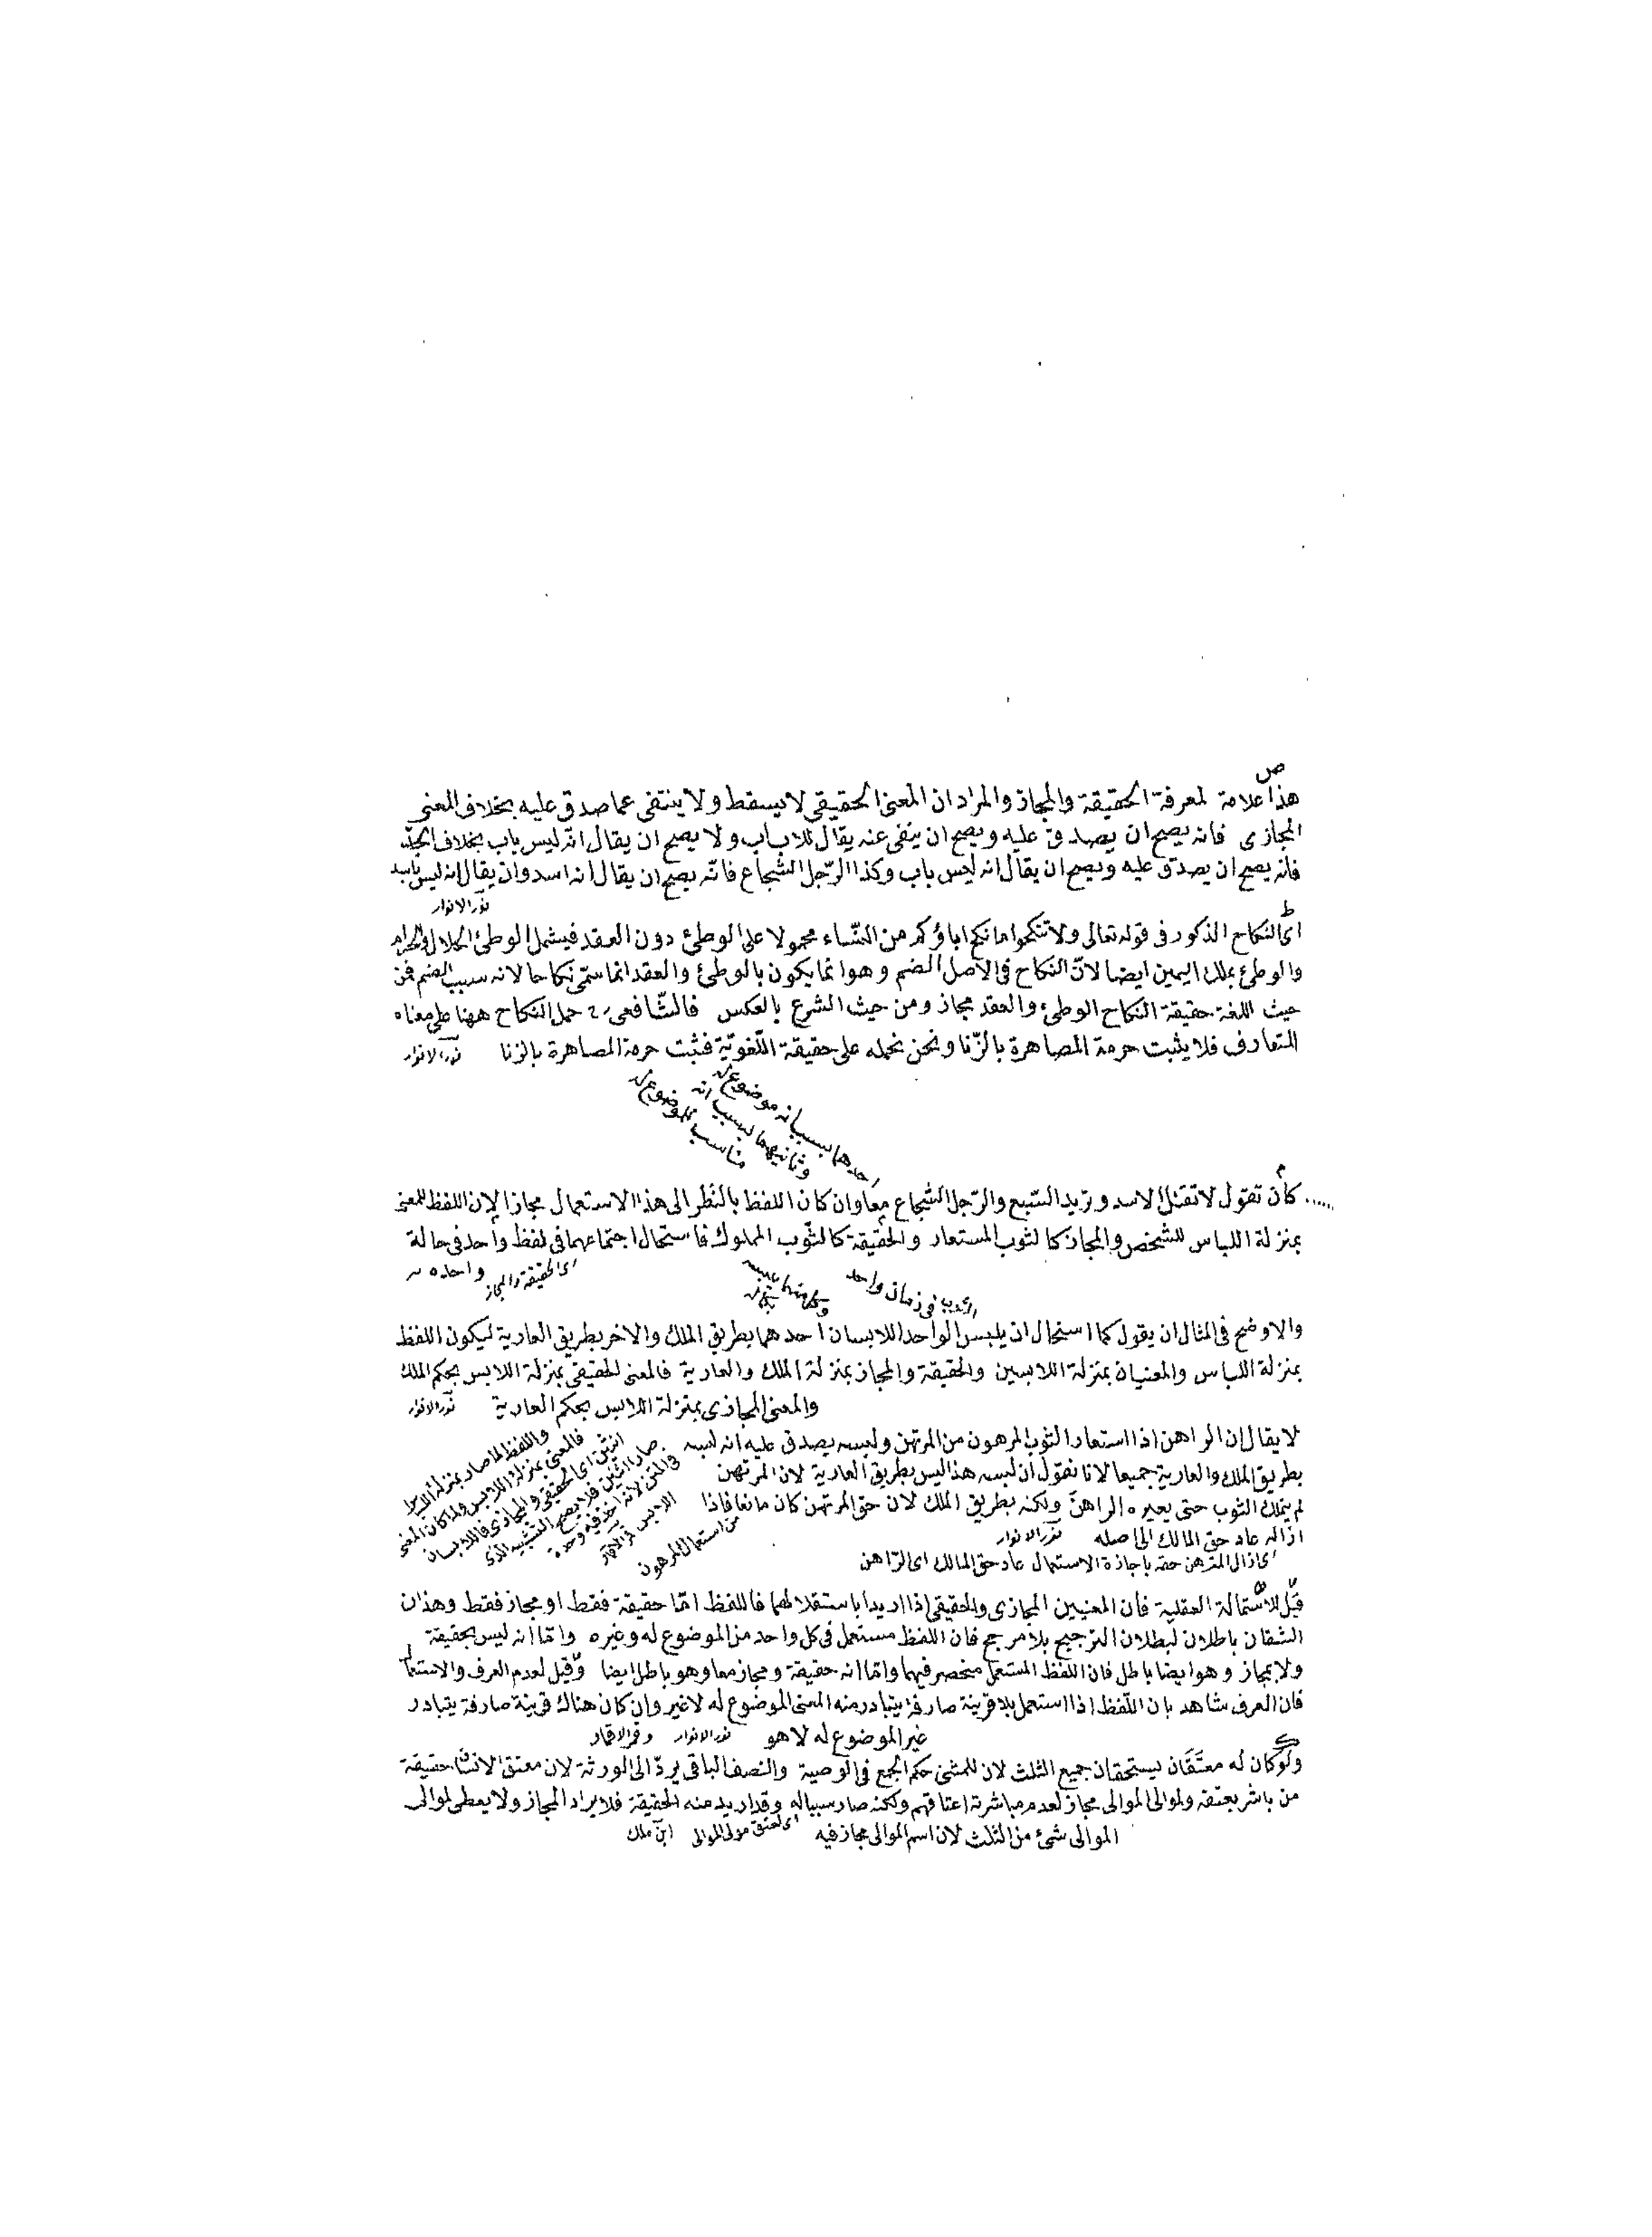 ص
هذا علامة لمعرفة الحقيقة والمجاز والمراد ان المعنى الحقيقي لا يسقط ولا ينتفى عما صدق عليه بخلاف المعنى
المجازى فانه يصح ان يصدق عليه ويصح ان ينفى عنه يقال للاب اب ولا يصح ان يقال انه ليس باب بخلاف الجد
فانه يصح ان يصدق عليه ويصح ان يقال انه ليس باب وكذا الرّجل الشجاع فانّه يصح ان يقال انه اسد وان يقال انه ليس باسد
نور الانوار
ط
اى النكاح المذكور فى قوله تعالى ولا تنكحوا ما نكح اباؤكم من النّساء محمولا على الوطئ دون العقد فيشمل الوطئ الحلال والحرام
والوطئ بملك اليمين ايضا لانّ النكاح فى الاصل الضم وهو انما يكون بالوطئ والعقد انما سمّى نكاحا لانه سبب الضم فمن
حيث اللغة حقيقة النكاح الوطئ والعقد مجاز ومن حيث الشرع بالعكس فالشّافعى حمل النكاح ههنا على معناه
المتعارف فلا يثبت حرمة المصاهرة بالزّنا ونحن نحمله على حقيقة اللّغويّة فثبت حرمة المصاهرة بالزنا نور الانوار
احدهما بسبب انه موضوع له
وثانيهما بسبب انه
مناسب للموضوع له
م
كان تقول لا تقتل الاسد وتريد السّبع والرّجل الشجاع معا وان كان اللفظ بالنظر الى هذا الاستعمال مجازا لان اللفظ للمعنى
بمنزلة اللباس للشخص والمجاز كالثوب المستعار والحقيقة كالثّوب المملوك فاستحال اجتماعهما فى لفظ واحد فى حالة
واحده
اى الحقيقة والمجاز
فى زمان واحد
وكل منهما
والاوضح فى المثال ان يقول كما استحال ان يلبس الواحد اللابسان احدهما بطريق الملك والاخر بطريق العارية ليكون اللفظ
بمنزلة اللباس والمعنيان بمنزلة اللابسين والحقيقة والمجاز بمنزلة الملك والعارية فالمعنى الحقيقى بمنزلة اللابس بحكم الملك
والمعنى المجازى بمنزلة اللابس بحكم العارية نور الانوار
لا يقال ان الراهن اذا استعار الثوب المرهون من المرتهن ولبسه يصدق عليه انه لبسه
بطريق الملك والعارية جميعا لانا نقول ان لبسه هذا ليس بطريق العارية لان المرتهن
لم يتملك الثوب حتى يعيره الراهن ولكنه بطريق الملك لان حق المرتهن كان مانعا فاذا
ازاله عاد حق المالك الى اصله نور الانوار
من استعمال المرهون
اى ازال المرتهن حقه باجازة الاستعمال عاد حق المالك اى الرّاهن
واللفظ لما صار بمنزلة اللباس
فالمعنى بمنزلة اللابس ولما كان المعنى
اثنين اى الحقيقى والمجازى فاللابسان
صار اثنين فلا يصح التشبيه الذى
فى المتن لانه اخذ فيه وحدة
اللابس قمر الاقمار
قيل للاستحالة العقلية فان المعنيين المجازى والحقيقى اذا اريدا باستقلالهما فاللفظ امّا حقيقة فقط او مجاز فقط وهذان
الشقان باطلان لبطلان الترجيح بلا مرجح فان اللفظ مستعمل فى كل واحد من الموضوع له وغيره وامّا انه ليس بحقيقة
ولا بمجاز وهو ايضا باطل فان اللفظ المستعمل منحصر فيهما وامّا انه حقيقة ومجاز معا وهو باطل ايضا وقيل لعدم العرف والاستعمال
فان العرف شاهد بان اللّفظ اذا استعمل بلا قرينة صارفة يتبادر منه المعنى الموضوع له لا غير وان كان هناك قرينة صارفة يتبادر
غير الموضوع له لا هو نور الانوار وقمر الاقمار
ولو كان له معتَقان يستحقان جميع الثلث لان للمثنى حكم الجمع فى الوصية والنصف الباقى يردّ الى الورثة لان معتق الانسان حقيقة
من باشر بعتقه ولموالى الموالى مجاز لعدم مباشرته اعتاقهم ولكنه صار سببا له وقد اريد منه الحقيقة فلا يراد المجاز ولا يعطى لموالى
الموالى شئ من الثلث لان اسم الموالى مجاز فيه اى لمعتق مولى الموالى ابن ملك